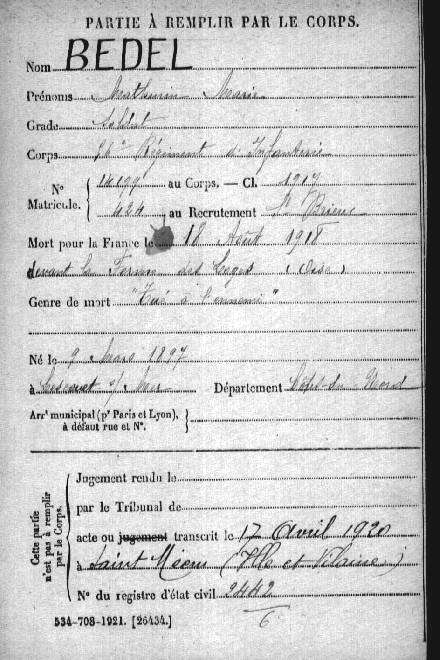 PARTIE À REMPLIR PAR LE CORPS.
Nom BEDEL
Prénoms Mathurin Marie
Grade Soldat
Corps Régiment d'Infanterie
Nº Matricule. au Corps. — Cl. 1917
424 au Recrutement St Brieuc
Mort pour la France le 18 Août 1918
devant la Ferme des Loges (Oise)
Genre de mort "Tué à l'ennemi"
Né le 9 Mars 1897
à Département Côtes-du-Nord
Arrᵗ municipal (pʳ Paris et Lyon),
à défaut rue et Nº.
Cette partie
n'est pas à remplir
par le Corps.
Jugement rendu le
par le Tribunal de
acte ou jugement transcrit le 17 Avril 1920
à Saint Méen (Ille et Vilaine)
Nº du registre d'état civil 2442
6
534-708-1921. [26434.]